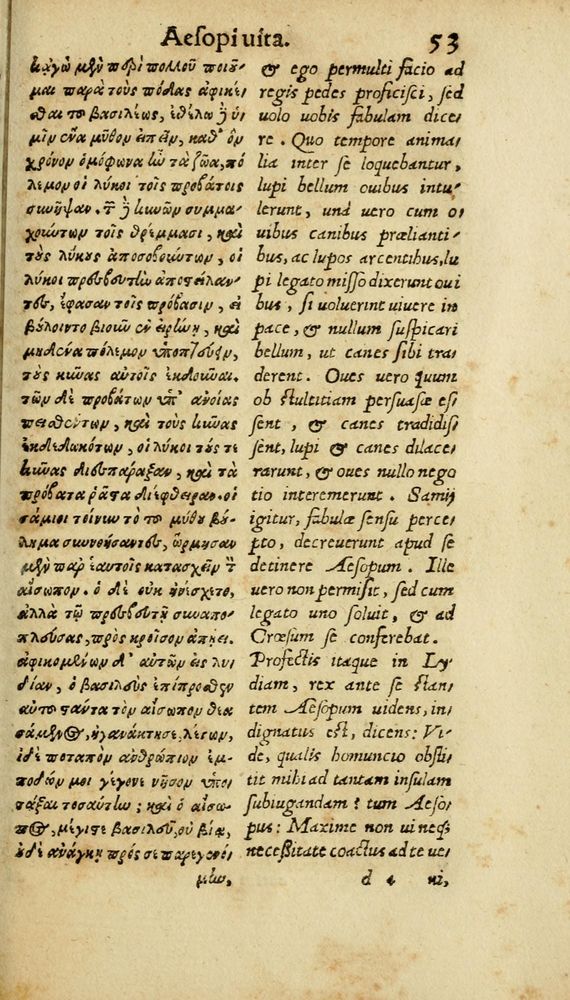 Aesopi uita. 53
κᾀγὼ μὲν περὶ πολλοῦ ποιοῦ-
μαι παρὰ τοὺς πόδας ἀφικέ-
σθαι τοῦ βασιλέως, ἐθέλω δὲ ὑ-
μῖν ἕνα μῦθον εἰπεῖν, καθ' ὃν
χρόνον ὁμόφωνα ἦν τὰ ζῶα, πό-
λεμον οἱ λύκοι τοῖς προβάτοις
συνῆψαν. τῶν δὲ κυνῶν συμμα-
χούντων τοῖς θρέμμασι, καὶ
τοὺς λύκους ἀποσοβούντων, οἱ
λύκοι πρεσβευτὴν ἀποστείλαν-
τες, ἔφασαν τοῖς πρόβασιν, εἰ
βούλοιντο βιοῦν ἐν εἰρήνῃ, καὶ
μηδένα πόλεμον ὑποπτεύειν,
τοὺς κύνας αὐτοῖς ἐκδοῦναι.
τῶν δὲ προβάτων ὑπ' ἀνοίας
πεισθέντων, καὶ τοὺς κύνας
ἐκδεδωκότων, οἱ λύκοι τούς τε
κύνας διεσπάραξαν, καὶ τὰ
πρόβατα ῥᾷστα διέφθειραν. οἱ
σάμιοι τοίνυν τὸ τοῦ μύθου βού-
λημα συννοήσαντες, ὥρμησαν
μὲν παρ' ἑαυτοῖς κατασχεῖν τὸν
αἴσωπον. ὁ δὲ οὐκ ἠνέσχετο,
ἀλλὰ τῷ πρεσβευτῇ συναπο-
πλεύσας, πρὸς κροῖσον ἀπῄει.
ἀφικομένων δ' αὐτῶν εἰς λυ-
δίαν, ὁ βασιλεὺς ἐπίπροσθεν
αὐτοῦ στάντα τὸν αἴσωπον θεα-
σάμενος, ἠγανάκτησε, λέγων,
ἴδε ποταπὸν ἀνθρώπιον ἐμ-
ποδών μοι γέγονε νῆσον ὑπο-
τάξαι τοσαύτην; καὶ ὁ αἴσω-
πος, μέγιστε βασιλεῦ, οὐ βίᾳ,
οὐδὲ ἀνάγκῃ πρός σε παρεγενό-
μην,
& ego permulti facio ad
regis pedes proficisci, sed
uolo uobis fabulam dice-
re. Quo tempore anima-
lia inter se loquebantur,
lupi bellum ouibus intu-
lerunt, unà uero cum o-
uibus canibus prælianti-
bus, ac lupos arcentibus, lu-
pi legato misso dixerunt oui-
bus, si uoluerint uiuere in
pace, & nullum suspicari
bellum, ut canes sibi tra-
derent. Oues uero quum
ob stultitiam persuasæ es-
sent, & canes tradidis-
sent, lupi & canes dilace-
rarunt, & oues nullo nego-
tio interemerunt. Samij
igitur, fabulæ sensu perce-
pto, decreuerunt apud se
detinere Aesopum. Ille
uero non permisit, sed cum
legato uno soluit, & ad
Crœsum se conferebat.
Profectis itaque in Ly-
diam, rex ante se stan-
tem Aesopum uidens, in-
dignatus est, dicens: Vi-
de, qualis homuncio obsti-
tit mihi ad tantam insulam
subiugandam? tum Aeso-
pus: Maxime non ui neq́;
necessitate coactus ad te ue-
d 4 ni,